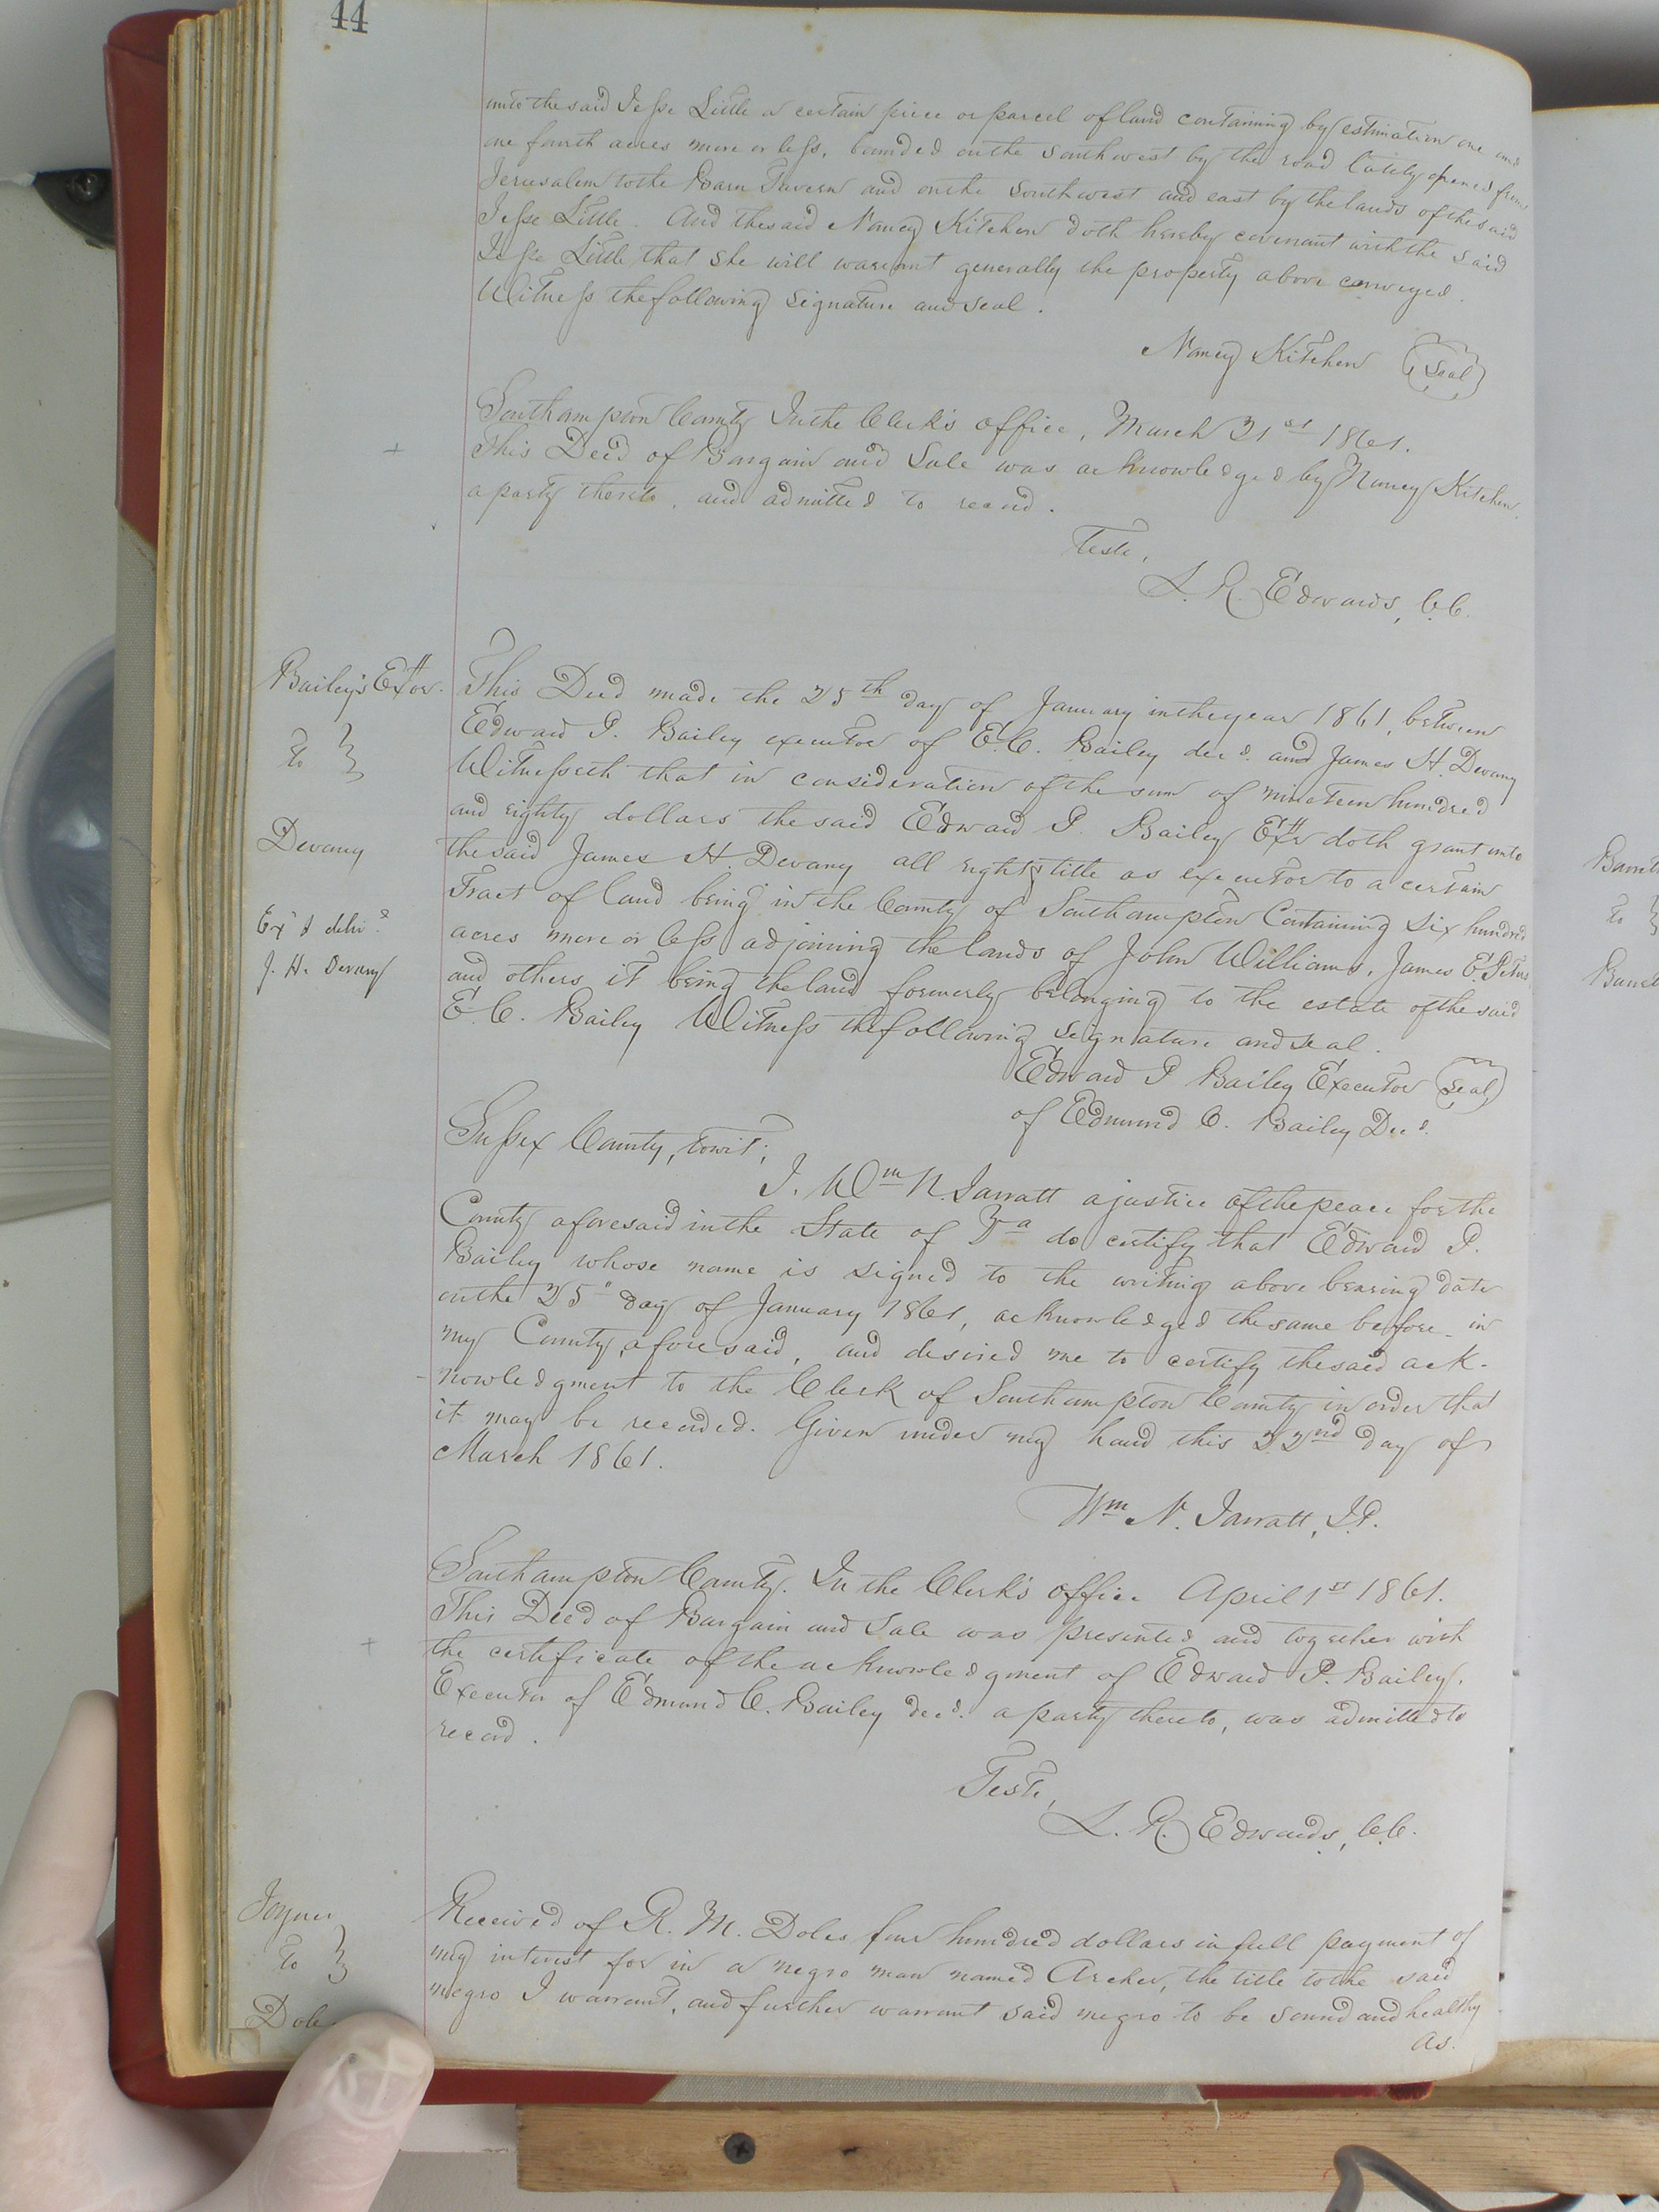 44
unto the said Jesse Little a certain piece or parcel of land containing by estimation one and
one fourth acres more or less, bounded on the Southwest by the road lately opened from
Jerusalem to the Barn Tavern and on the Southwest and east by the lands of the said
Jesse Little. And the said Nancy Kitchen doth hereby covenant with the said
Jesse Little that she will warrant generally the property above conveyed.
Witness the following signature and seal.
Nancy Kitchen (Seal)
Southampton County In the Clerk's office, March 21st 1861.
+ This Deed of Bargain and Sale was acknowledged by Nancy Kitchen
a party thereto, and admitted to record.
Teste,
L. R. Edwards, C.C.
Bailey's Exor.
to }
Devany
Ex'd & deliv'd
J. H. Devany
This Deed made the 25th day of January in the year 1861, between
Edward P. Bailey executor of E. C. Bailey dec'd. and James H. Devany
Witnesseth that in consideration of the sum of nineteen hundred
and eighty dollars the said Edward P. Bailey Exr doth grant unto
the said James H. Devany all right & title as executor to a certain
Tract of land being in the County of Southampton Containing six hundred
acres more or less adjoining the lands of John Williams, James E.
and others it being the land formerly belonging to the estate of the said
E. C. Bailey Witness the following signature and seal.
Edward P Bailey Executor (Seal)
of Edmund C. Bailey Dec'd.
Sussex County, towit;
I. Wm N. Jarratt a justice of the peace for the
County aforesaid in the State of Va do certify that Edward P.
Bailey whose name is signed to the writing above bearing date
on the 25" day of January 1861, acknowledged the same before in
my County aforesaid, and desired me to certify the said ack-
-nowledgment to the Clerk of Southampton County in order that
it may be recorded. Given under my hand this 22nd day of
March 1861.
Wm N. Jarratt, J.P.
Southampton County. In the Clerk's office April 1st 1861.
This Deed of Bargain and Sale was presented and together with
+ the certificate of the acknowledgment of Edward P. Bailey,
Executor of Edmund C. Bailey dec'd. a party thereto, was admitted to
record.
Teste,
L. R. Edwards, C.C.
Joyner
to }
Dole
Received of R. M. Doles four hundred dollars in full payment of
my interest for in a negro man named Archer, the title to the said
negro I warrant, and further warrant said negro to be sound and healthy
as.
to }